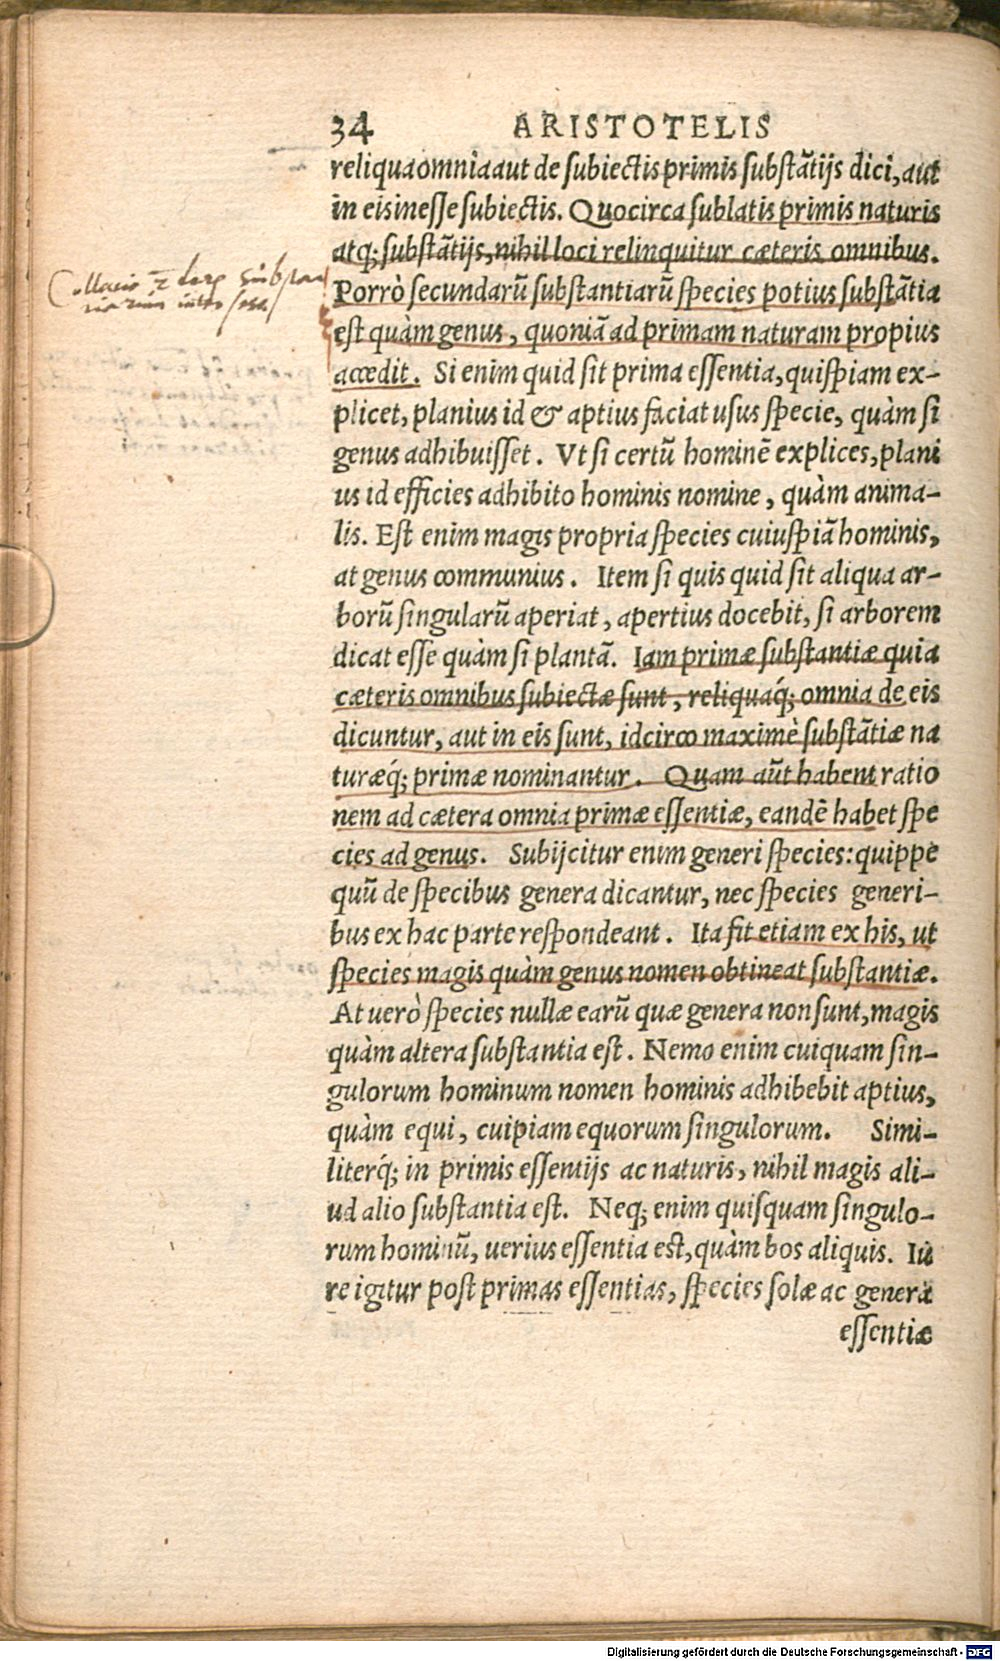 34 ARISTOTELIS
reliqua omnia aut de subiectis primis substãtijs dici, aut
in eis inesse subiectis. Quocirca sublatis primis naturis
atq; substãtijs, nihil loci relinquitur cæteris omnibus.
Porrò secundarũ substantiarũ species potius substãtia
est quàm genus, quoniã ad primam naturam propius
accedit. Si enim quid sit prima essentia, quispiam ex-
plicet, planius id & aptius faciat usus specie, quàm si
genus adhibuisset. Vt si certũ hominẽ explices, plani
us id efficies adhibito hominis nomine, quàm anima-
lis. Est enim magis propria species cuiuspiã hominis,
at genus communius. Item si quis quid sit aliqua ar-
borũ singularũ aperiat, apertius docebit, si arborem
dicat esse quàm si plantã. Iam primæ substantiæ quia
cæteris omnibus subiectæ sunt, reliquaq́; omnia de eis
dicuntur, aut in eis sunt, idcirco maximè substãtiæ na
turæq́; primæ nominantur. Quam aũt habent ratio
nem ad cætera omnia primæ essentiæ, eandẽ habet spe
cies ad genus. Subijcitur enim generi species: quippe
quũ de specibus genera dicantur, nec species generi-
bus ex hac parte respondeant. Ita fit etiam ex his, ut
species magis quàm genus nomen obtineat substantiæ.
At uerò species nullæ earũ quæ genera non sunt, magis
quàm altera substantia est. Nemo enim cuiquam sin-
gulorum hominum nomen hominis adhibebit aptius,
quàm equi, cuipiam equorum singulorum. Simi-
literq́; in primis essentijs ac naturis, nihil magis ali-
ud alio substantia est. Neq; enim quisquam singulo-
rum hominũ, uerius essentia est, quàm bos aliquis. Iu
re igitur post primas essentias, species solæ ac genera
essentiæ
Collacio substan
tiarum inter sese
Digitalisierung gefördert durch die Deutsche Forschungsgemeinschaft - DFG